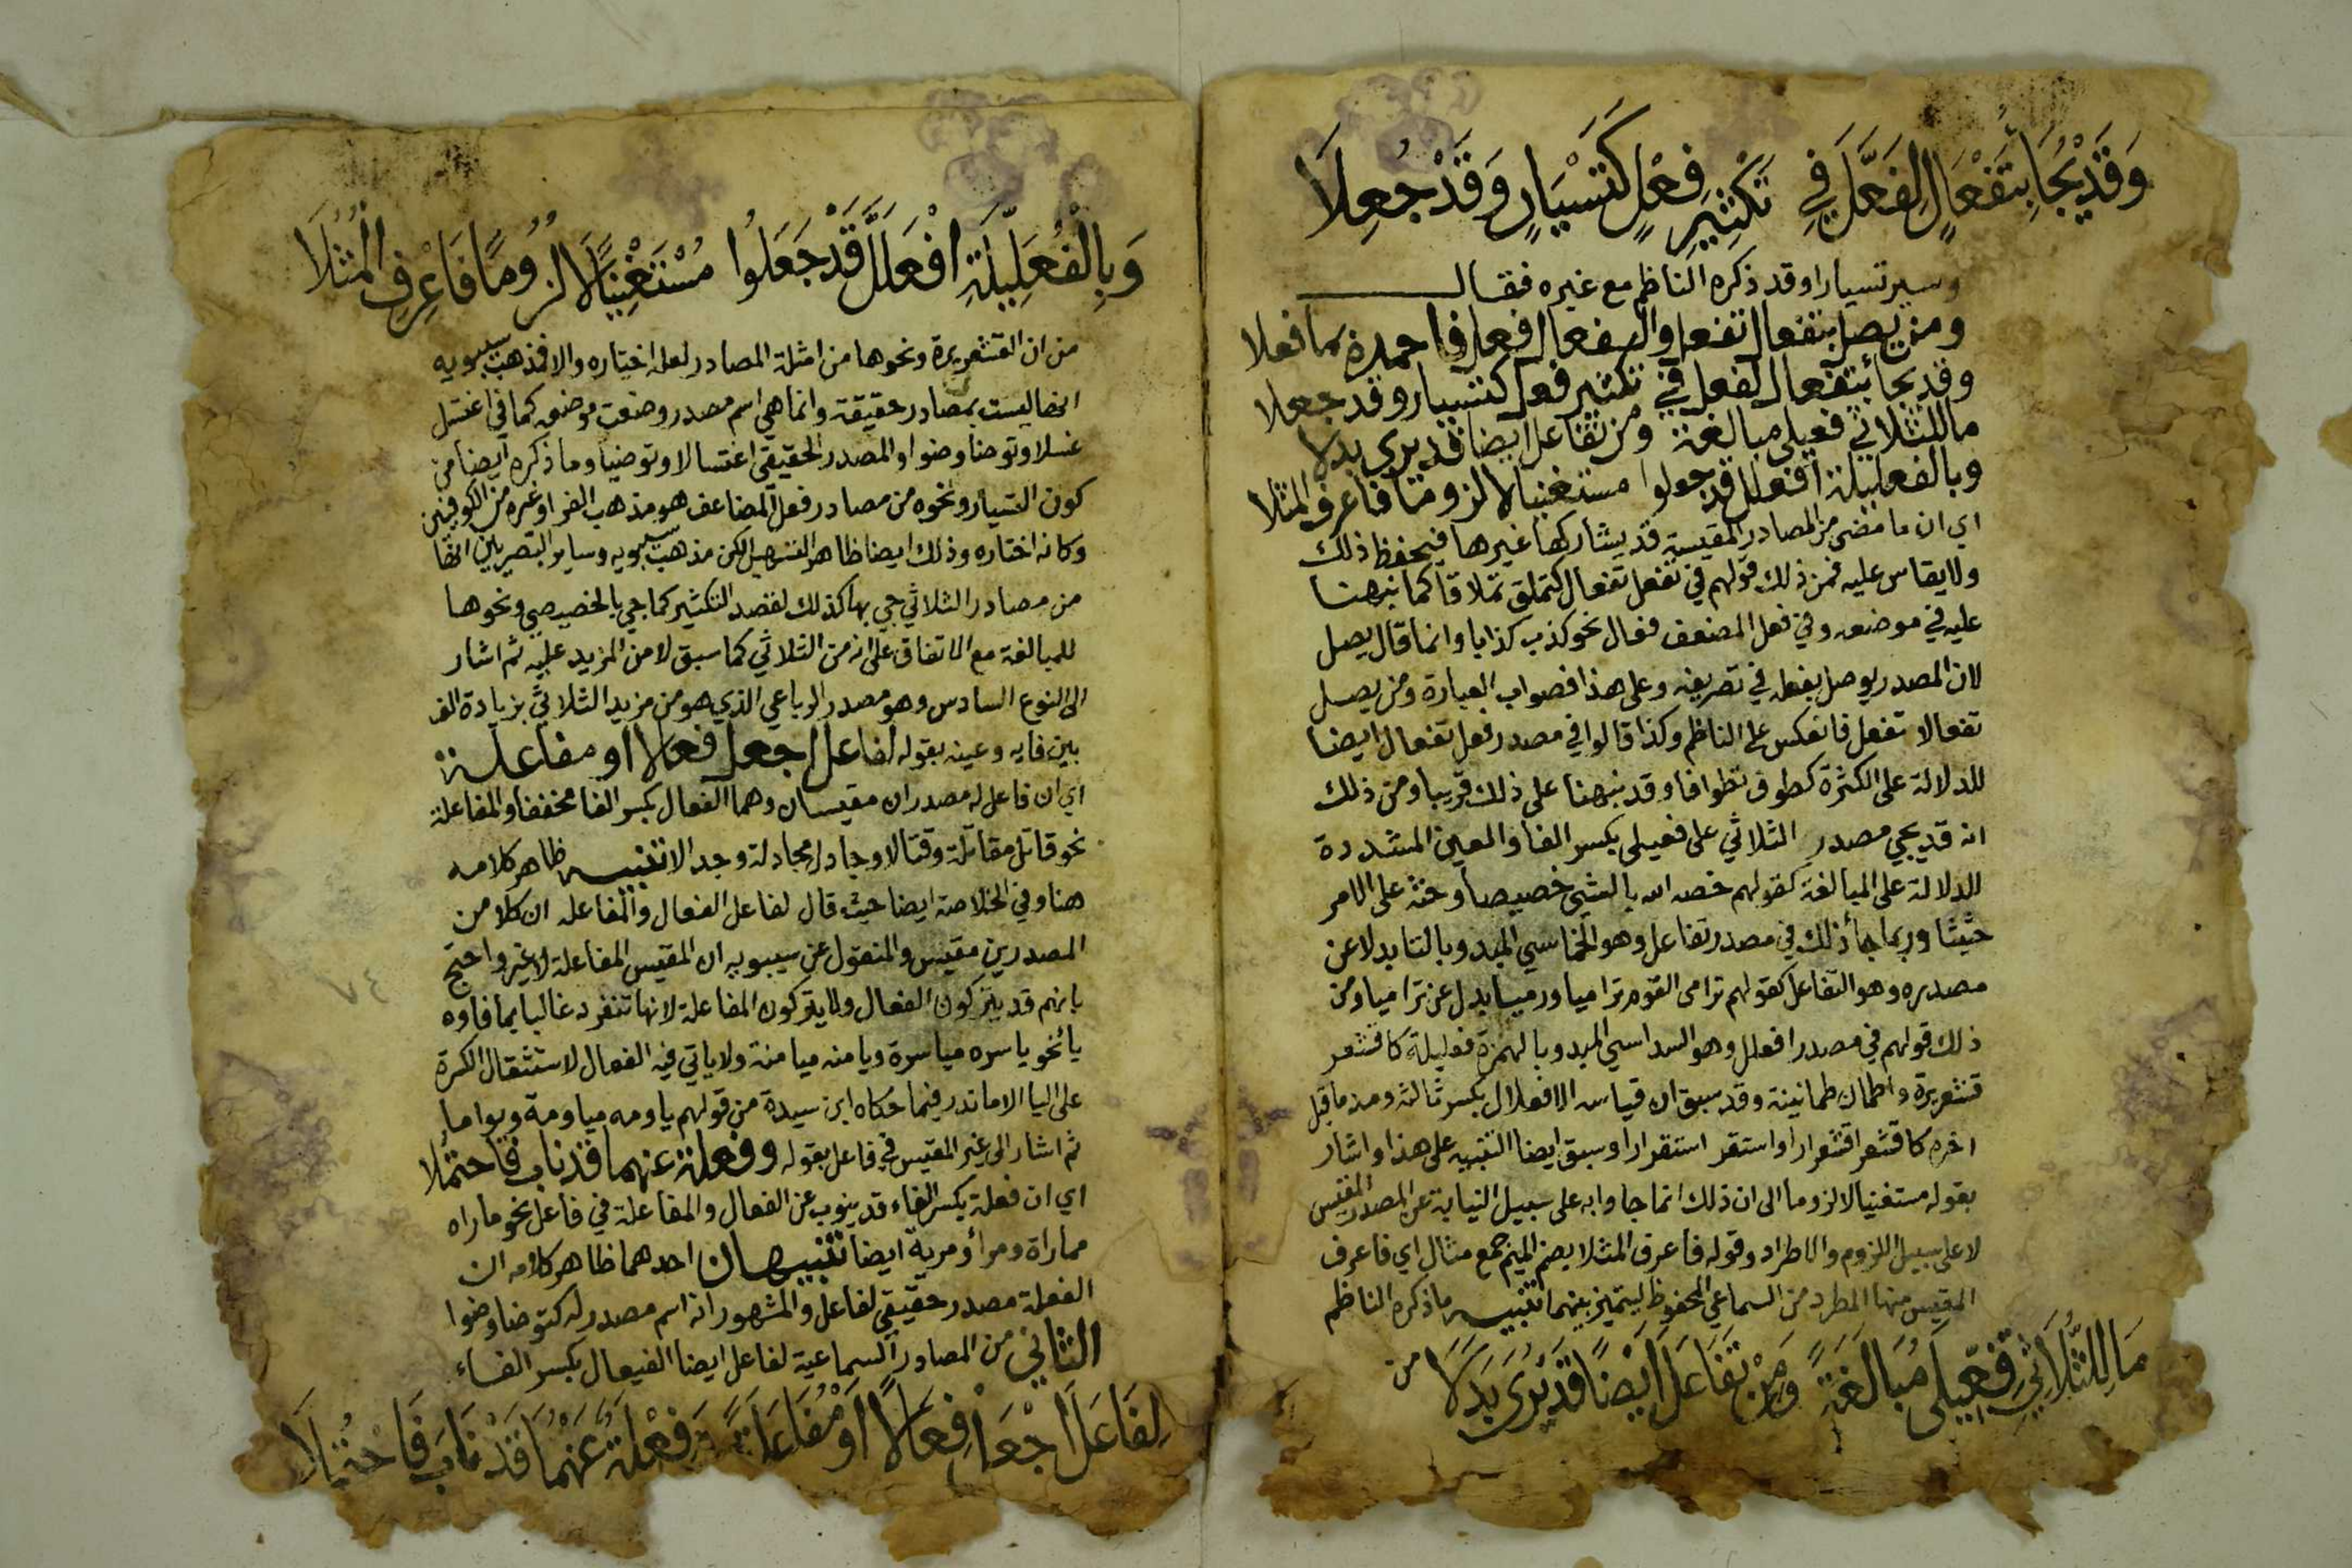 وَقَدْ يُجَا بِتَفْعَالٍ لِفَعَّلَ فِي تَكْثِيرِ فِعْلٍ كَتَسْيَارٍ وَقَدْ جُعِلَا
وسير تسيارا وقد ذكره الناظم مع غيره فقال
ومن يصل بتفعال تفعل والفعال فعل فاحمده بما فعلا
وقد يجا بتفعال لفعل في تكثير فعل كتسيار وقد جعلا
ما للثلاثي فعيلى مبالغة ومن تفاعل ايضا قد يرى بدلا
وبالفعليلة افعلل قد جعلوا مستغنيا لا لزوما فاعرف المثلا
اي ان ما مضى من المصادر المقيسة قد يشاركها غيرها فيحفظ ذلك
ولا يقاس عليه فمن ذلك قولهم في تفعل تفعال كتملق تملاقا كما نبهنا
عليه في موضعه وفي فعل المضعف فعال نحو كذب كذابا وانما قال يصل
لان المصدر يوصل بفعله في تصريفه وعلى هذا فصواب العبارة ومن يصل
تفعالا بتفعل فانعكس على الناظم وكذا قالوا في مصدر فعل تفعال ايضا
للدلالة على الكثرة كطوف تطوافا وقد نبهنا على ذلك قريبا ومن ذلك
انه قد يجي مصدر الثلاثي على فعيلى بكسر الفا والعين المشددة
للدلالة على المبالغة كقولهم خصه الله بالشي خصيصا وحثه على الامر
حثيثا وربما جا ذلك في مصدر تفاعل وهو الخماسي المبدو بالتا بدلا عن
مصدره وهو التفاعل كقولهم ترامى القوم تراميا ورميا بدل عن تراميا ومن
ذلك قولهم في مصدر افعلل وهو السداسي المبدو بالهمزة فعليلة كاقشعر
قشعريرة واطمان طمانينة وقد سبق ان قياسه الافعلال بكسر ثالثه ومد ما قبل
اخره كاقشعر اقشعرارا واستقر استقرارا وسبق ايضا التنبيه على هذا واشار
بقوله مستغنيا لا لزوما الى ان ذلك انما جاوا به على سبيل النيابة عن المصدر المقيس
لا على سبيل اللزوم والاطراد وقوله فاعرف المثلا بضم الميم جمع مثال اي فاعرف
المقيس منها المطرد من السماعي المحفوظ ليتميز بينهما تنبيه ما ذكره الناظم
مَا لِلثُّلَاثِي فِعِّيلَى مُبَالَغَةً وَمِنْ تَفَاعَلَ اَيْضًا قَدْ يُرَى بَدَلَا
من
وَبِالْفُعَلِّيلَةِ افْعَلَلَّ قَدْ جَعَلُوا مُسْتَغْنِيًا لَا لُزُومًا فَاعْرِفِ الْمُثُلَا
من ان القشعريرة ونحوها من امثلة المصادر لعله اختياره والا فمذهب سيبويه
انها ليست بمصادر حقيقة وانما هي اسم مصدر وضعت موضعه كما في اغتسل
غسلا وتوضا وضوا والمصدر الحقيقي اغتسالا وتوضيا وما ذكره ايضا من
كون التسيار ونحوه من مصادر فعل المضاعف هو مذهب الفرا وغيره من الكوفيين
وكانه اختاره وذلك ايضا ظاهر التسهيل لكن مذهب سيبويه وساير البصريين انها
من مصادر الثلاثي جي بها كذلك لقصد التكثير كما جي بالخصيصى ونحوها
للمبالغة مع الاتفاق على انه من الثلاثي كما سبق لا من المزيد عليه ثم اشار
الى النوع السادس وهو مصدر الرباعي الذي هو من مزيد الثلاثي بزيادة الف
بين فايه وعينه بقوله لفاعل اجعل فعالا او مفاعلة
اي ان فاعل له مصدران مقيسان وهما الفعال بكسر الفا مخففا والمفاعلة
نحو قاتل مقاتلة وقتالا وجادل مجادلة وجدالا تنبيه ظاهر كلامه
هنا وفي الخلاصة ايضا حيث قال لفاعل الفعال والمفاعله ان كلا من
المصدرين مقيس والمنقول عن سيبويه ان المقيس المفاعلة لا غير واحتج
بانهم قد يتركون الفعال ولا يتركون المفاعلة لانها تنفرد غالبا بما فاوه
يا نحو ياسره مياسرة ويامنه ميامنة ولا ياتي فيه الفعال لاستثقال الكسرة
على اليا الا ما ندر فيما حكاه ابن سيدة من قولهم ياومه مياومة ويواما
ثم اشار الى غير المقيس في فاعل بقوله وفعلة عنهما قد ناب فاحتملا
اي ان فعلة بكسر الفاء قد ينوب عن الفعال والمفاعلة في فاعل نحو ماراه
مماراة ومراً ومرية ايضا تنبيهان احدهما ظاهر كلامه ان
الفعلة مصدر حقيقي لفاعل والمشهور انه اسم مصدر له كتوضا وضوا
الثاني من المصادر السماعية لفاعل ايضا الفيعال بكسر الفاء
لِفَاعَلَ اجْعَلْ فِعَالًا اَوْ مُفَاعَلَةً وَفِعْلَةٌ عَنْهُمَا قَدْ نَابَ فَاحْتُمِلَا